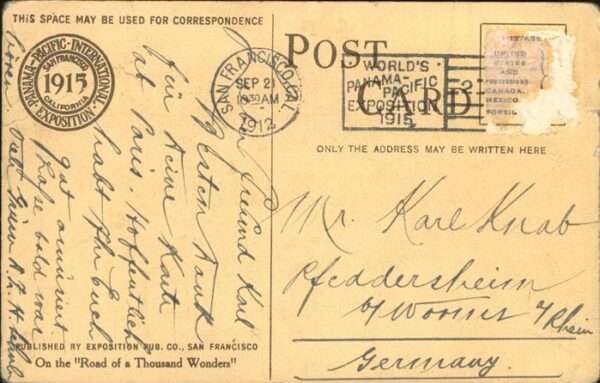 THIS SPACE MAY BE USED FOR CORRESPONDENCE
PANAMA-PACIFIC-INTERNATIONAL
SAN FRANCISCO
1915
CALIFORNIA
EXPOSITION
SAN FRANCISCO, CAL.
SEP 21
1912
POST CARD
WORLD'S
PANAMA-PACIFIC
EXPOSITION
1915
2
POSTAGE
UNITED
STATES
AND
CANADA,
MEXICO
ONLY THE ADDRESS MAY BE WRITTEN HERE
Freund Karl
Besten Dank
für Deine Karte
at Paris. Hoffentlich
habt Ihr Euch
gut amüsiert
bald
Mr. Karl Knab
Pfeddersheim
b/ Worms a/Rhein
Germany.
PUBLISHED BY EXPOSITION PUB. CO., SAN FRANCISCO
On the "Road of a Thousand Wonders"